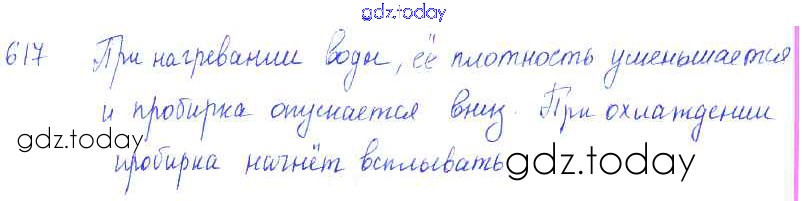 gdz.today
617 При нагревании воды, её плотность уменьшается
и пробирка опускается вниз. При охлаждении
gdz.today
пробирка начнёт всплывать
gdz.today